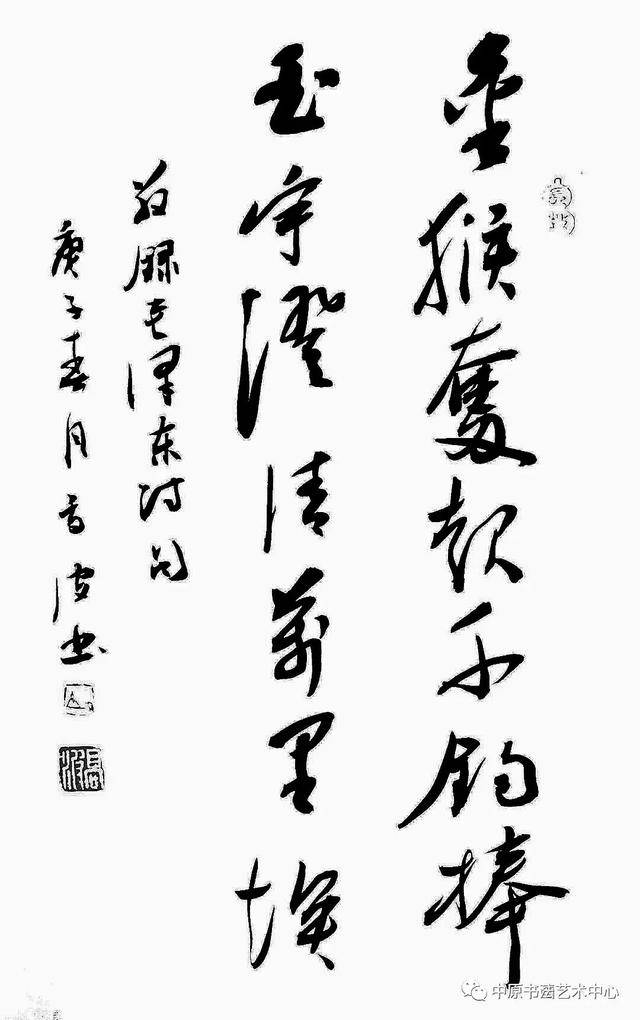 金猴奮起千鈞棒
玉宇澄清萬里埃
敬録毛泽东诗句
庚子春月 波书
中原书菡艺术中心